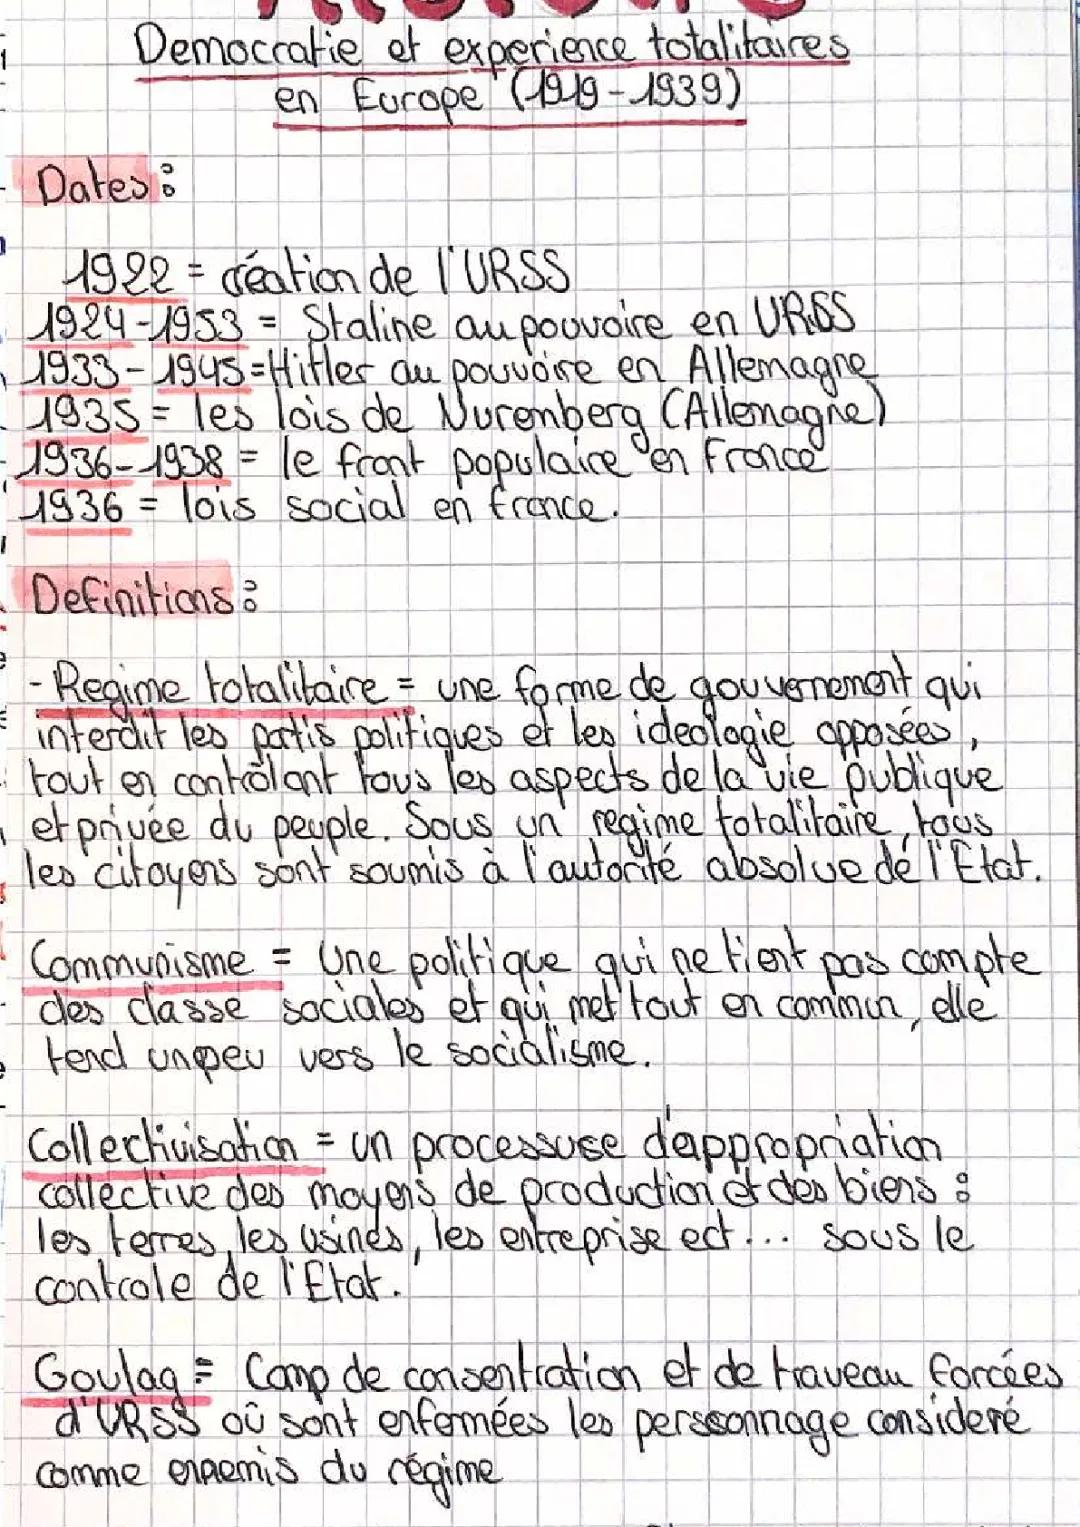 Democratie et experience totalitaires
en Europe (1919-1939)
Dates :
1922 = création de l'URSS
1924-1953 = Staline au pouvoire en URSS
1933-1945 = Hitler au pouvoire en Allemagne
1935 = les lois de Nuremberg (Allemagne)
1936-1938 = le front populaire en France
1936 = lois social en france.
Definitions :
- Regime totalitaire = une forme de gouvernement qui
interdit les partis politiques et les ideologie opposées,
tout en contrôlant tous les aspects de la vie publique
et privée du peuple. Sous un regime totalitaire, tous
les citoyens sont soumis à l'autorité absolue de l'Etat.
Communisme = Une politique qui ne tient pas compte
des classe sociales et qui met tout en commun, elle
tend un peu vers le socialisme.
Collectivisation = un processuse d'appropriation
collective des moyens de production et des biens :
les terres, les usines, les entreprise ect... sous le
controle de l'Etat.
Goulag = Camp de consentration et de traveau forcées
d'URSS où sont enfermées les perssonnage consideré
comme ennemis du régime